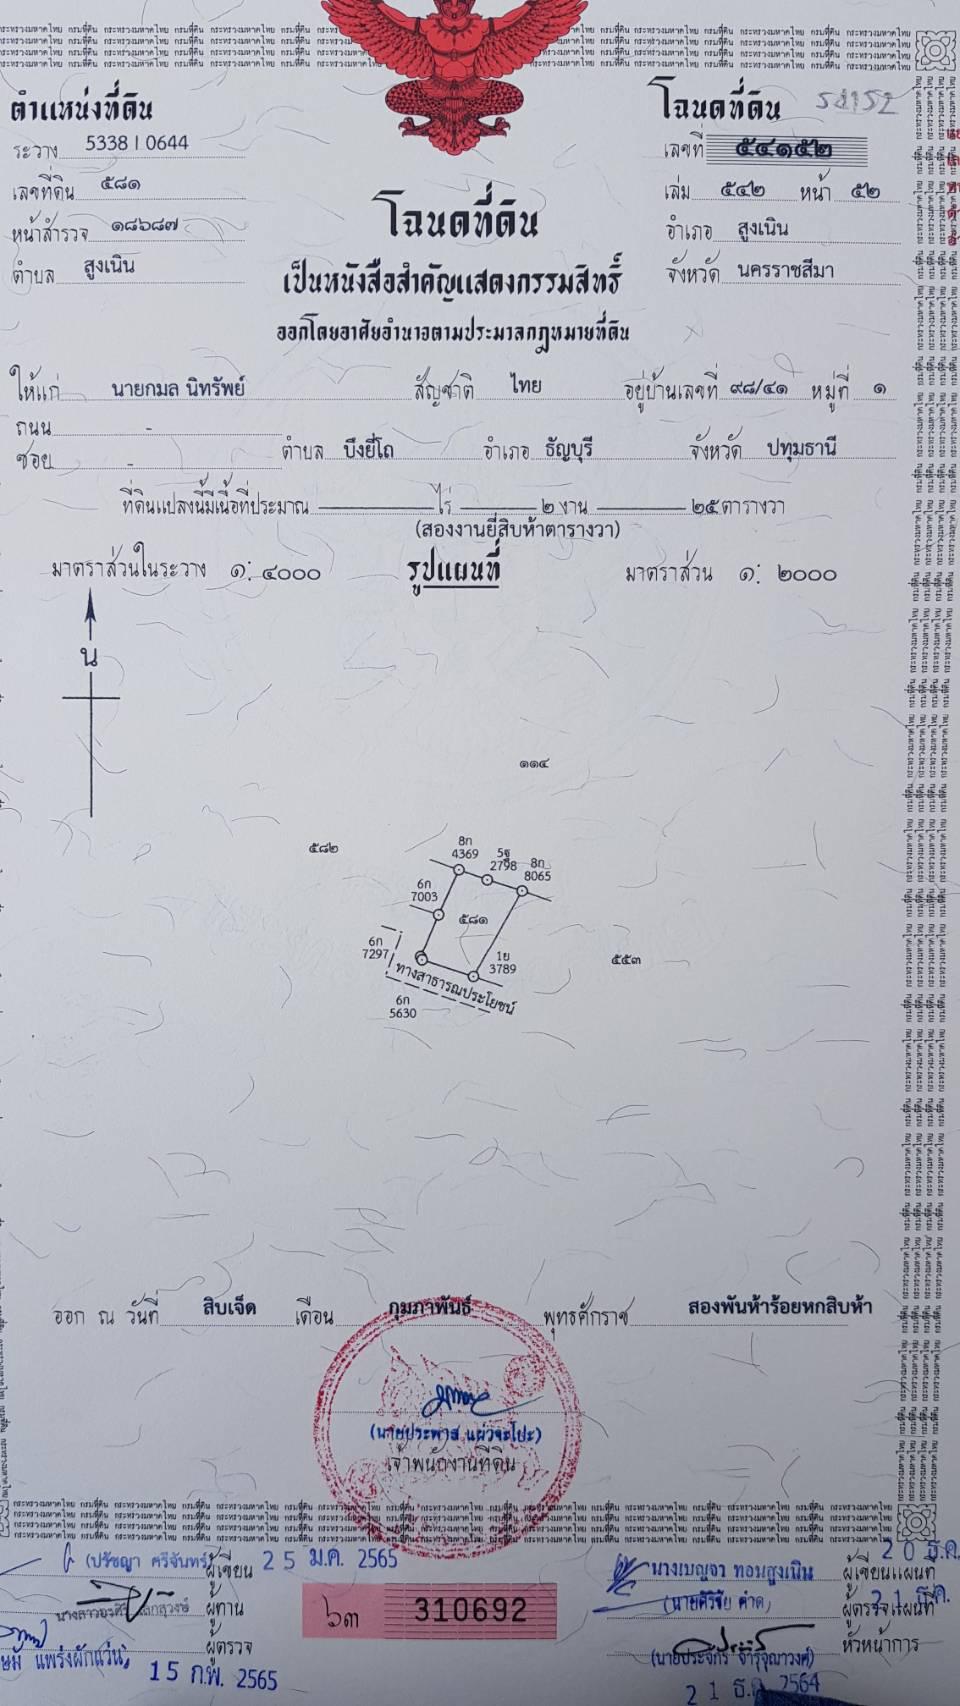 ตำแหน่งที่ดิน
ระวาง 5338 I 0644
เลขที่ดิน ๕๘๑
หน้าสำรวจ ๑๘๖๘๗
ตำบล สูงเนิน
โฉนดที่ดิน 54152
เลขที่ ๕๔๑๕๒
เล่ม ๕๔๒ หน้า ๕๒
อำเภอ สูงเนิน
จังหวัด นครราชสีมา
โฉนดที่ดิน
เป็นหนังสือสำคัญแสดงกรรมสิทธิ์
ออกโดยอาศัยอำนาจตามประมวลกฎหมายที่ดิน
ให้แก่ นายกมล นิทรัพย์ สัญชาติ ไทย อยู่บ้านเลขที่ ๙๘/๔๑ หมู่ที่ ๑
ถนน -
ซอย - ตำบล บึงยี่โถ อำเภอ ธัญบุรี จังหวัด ปทุมธานี
ที่ดินแปลงนี้มีเนื้อที่ประมาณ ไร่ ๒ งาน ๒๕ ตารางวา
(สองงานยี่สิบห้าตารางวา)
มาตราส่วนในระวาง ๑: ๔๐๐๐ รูปแผนที่ มาตราส่วน ๑: ๒๐๐๐
น
๑๑๔
๕๘๒
8ก
4369
5ฐ
2798
8ก
8065
6ก
7003
๕๘๑
6ก
7297
1ย
3789
๕๕๓
ทางสาธารณประโยชน์
6ก
5630
ออก ณ วันที่ สิบเจ็ด เดือน กุมภาพันธ์ พุทธศักราช สองพันห้าร้อยหกสิบห้า
(นายประพาส แผ่วจะโปะ)
เจ้าพนักงานที่ดิน
(ปรัชญา ศรีจันทร์) ผู้เขียน 25 ม.ค. 2565
ผู้ทาน
ผู้ตรวจ
แพร่งผักแว่น
15 ก.พ. 2565
๖๓ 310692
20 ธ.ค.
นางเบญจา ทอนสูงเนิน ผู้เขียนแผนที่
(นายศิริชัย คำด) ผู้ตรวจแผนที่ 21 ธ.ค.
หัวหน้าการ
(นายประจักร จำรุจุณาวงศ์)
21 ธ.ค. 2564
กระทรวงมหาดไทย กรมที่ดิน